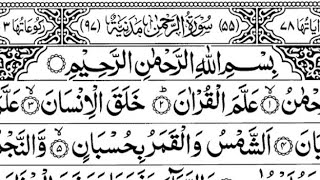 اٰیاتہا ۷۸ (۵۵) سُوْرَةُ الرَّحْمٰنِ مَدَنِیَّةٌ (۹۷) رکوعاتہا ۳
بِسْمِ اللّٰهِ الرَّحْمٰنِ الرَّحِیْمِ
۱ عَلَّمَ الْقُرْاٰنَ ۲ خَلَقَ الْاِنْسَانَ ۳
۴ اَلشَّمْسُ وَ الْقَمَرُ بِحُسْبَانٍ ۵